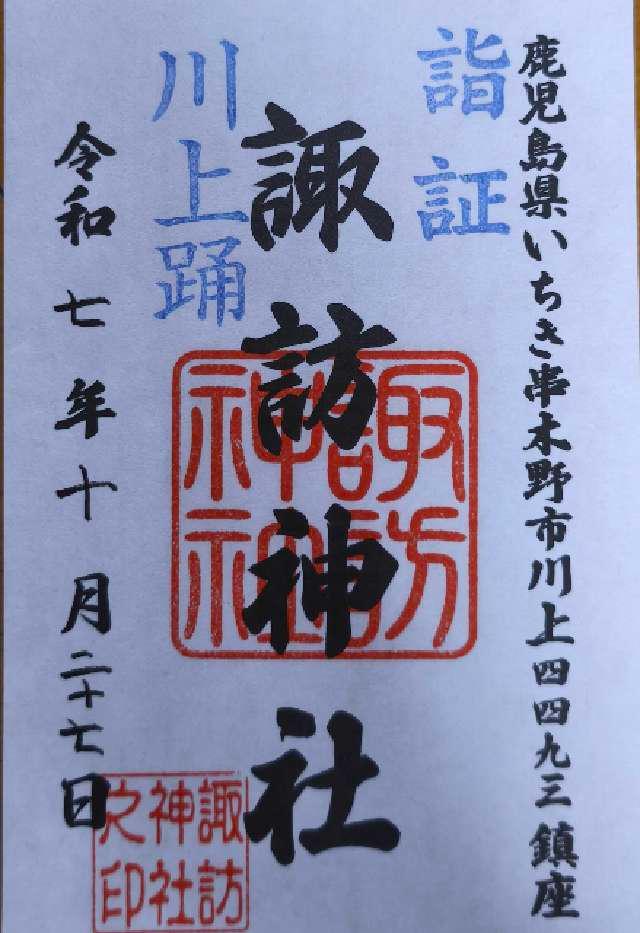 鹿児島県いちき串木野市川上四四九三鎮座
詣証
諏訪神社
川上踊
令和七年十月二十七日
諏訪神社
諏訪神社之印